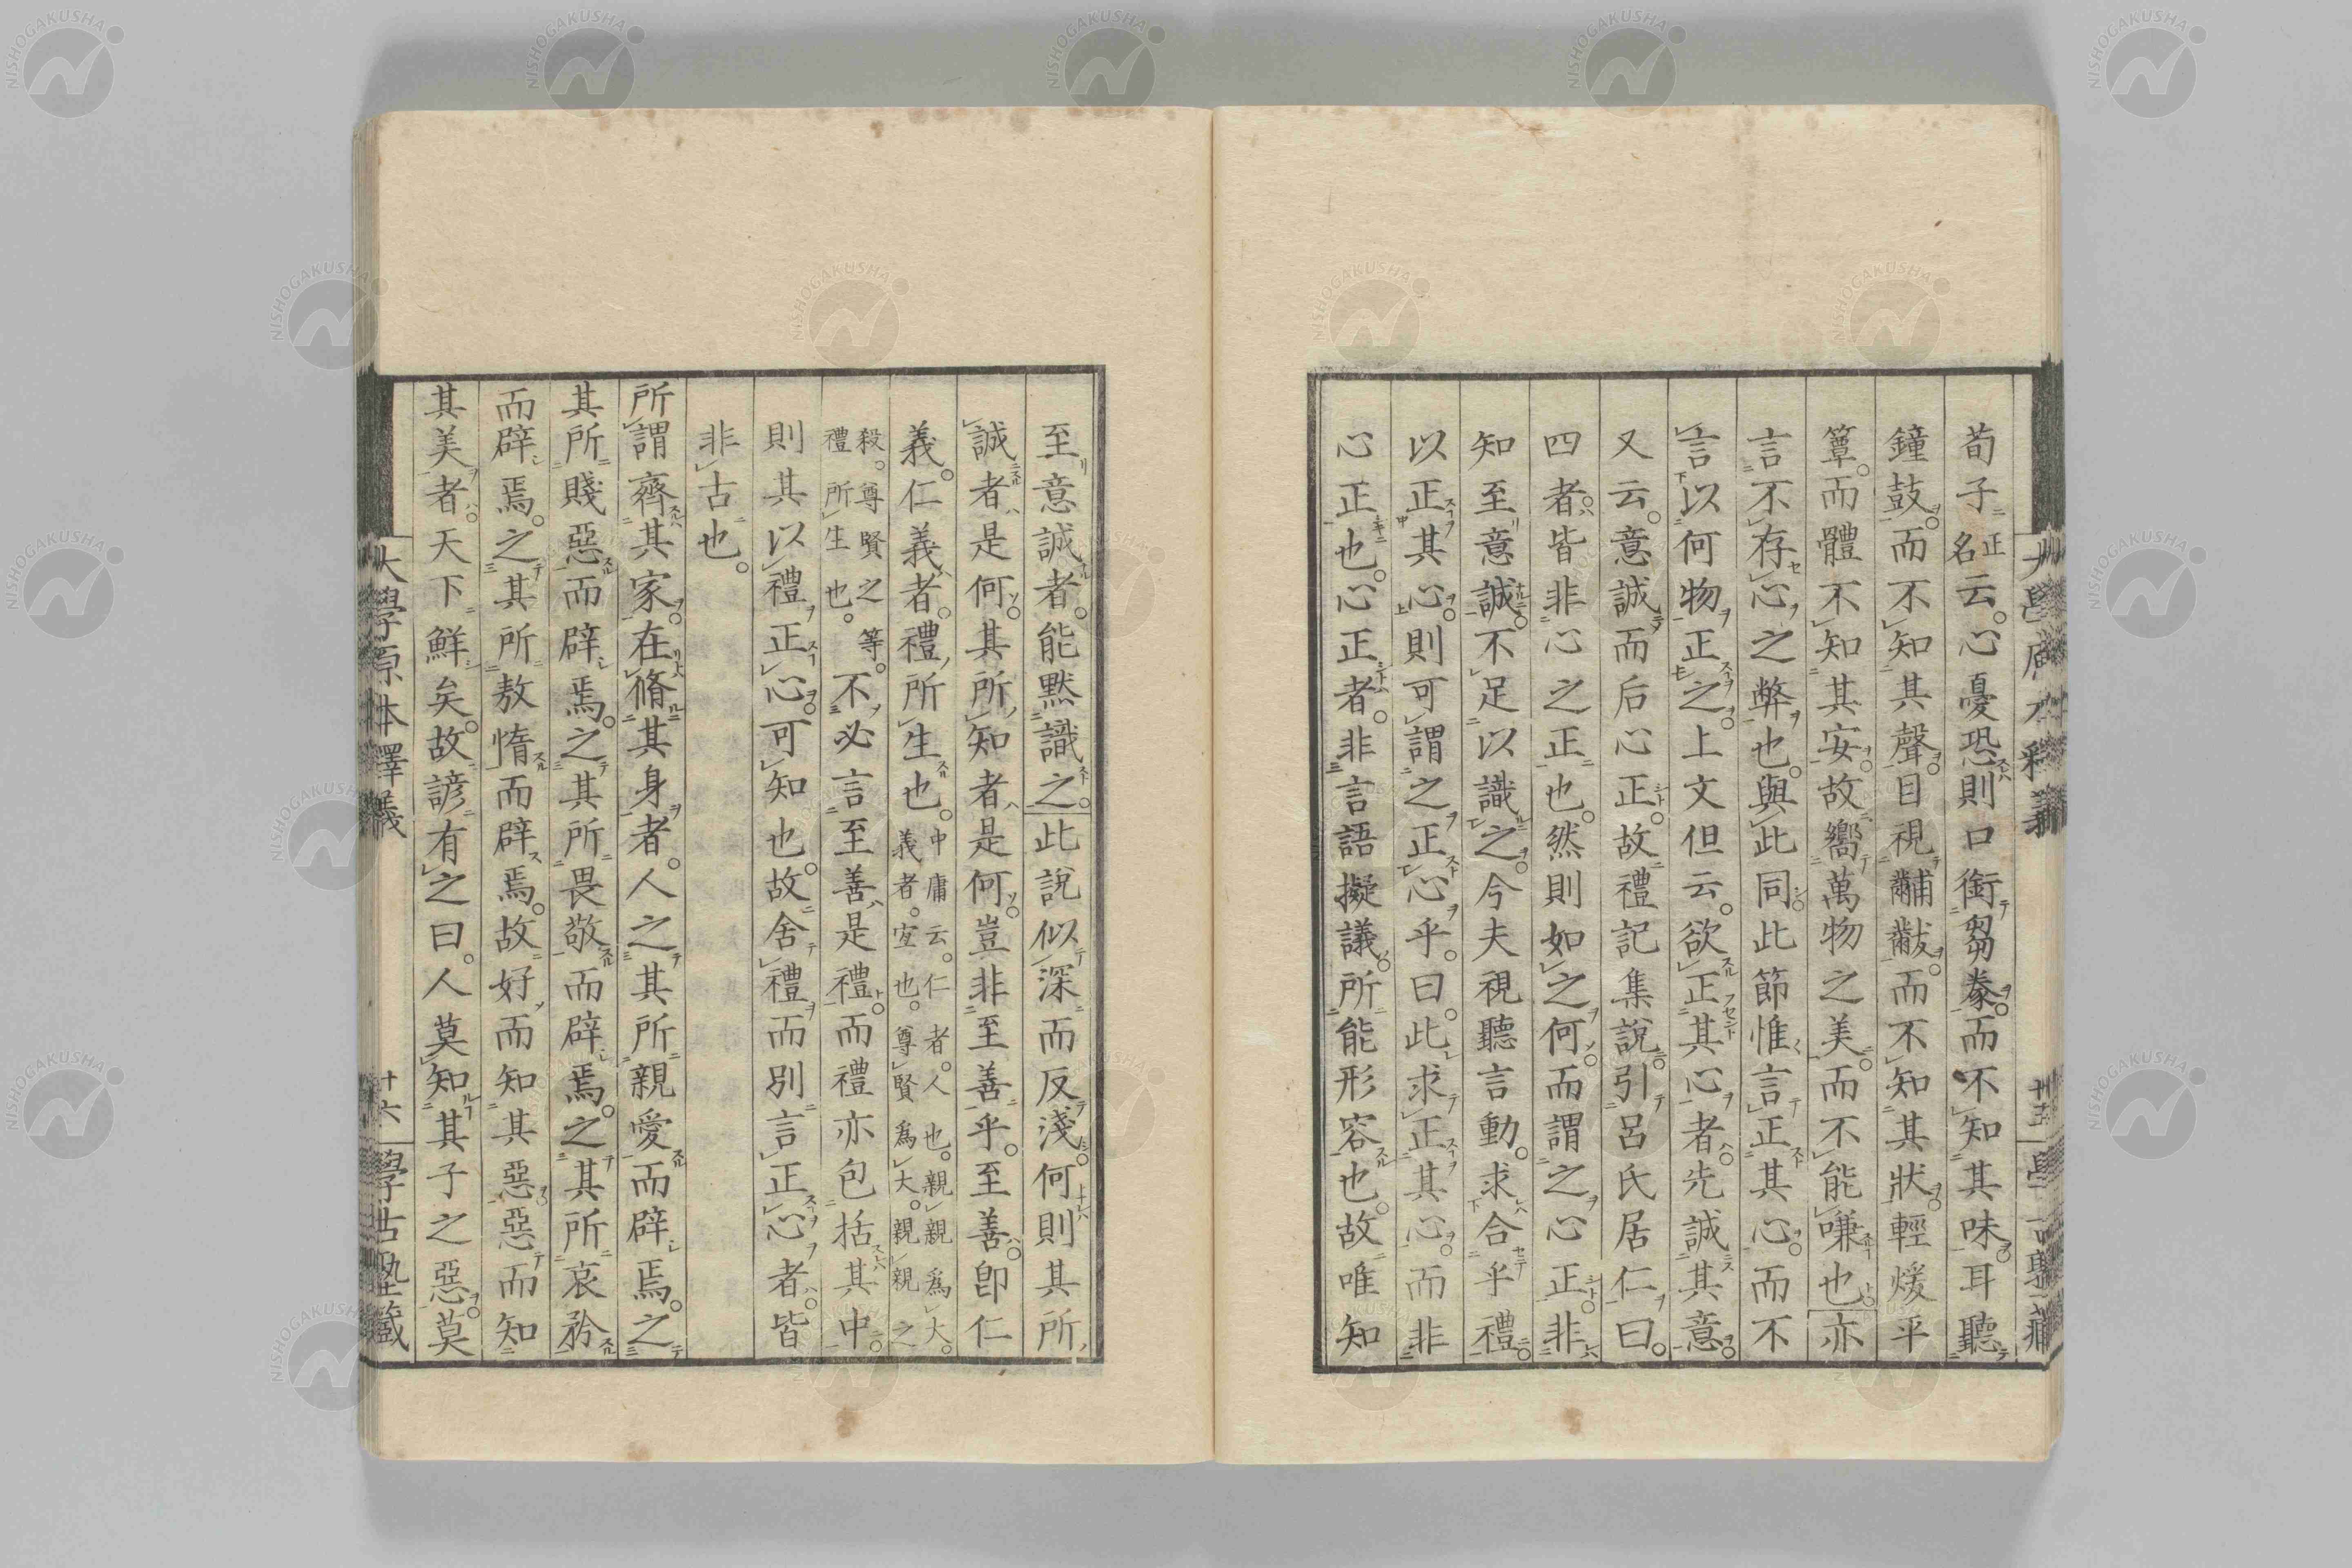 荀子正名云。心憂恐則口銜芻豢。而不知其味。耳聽
鐘鼓。而不知其聲。目視黼黻。而不知其狀。輕煖平
簟。而體不知其安。故嚮萬物之美。而不能嗛也。亦
言不存心之弊也。與此同此節惟言正其心。而不
言以何物正之。上文但云。欲正其心者。先誠其意。
又云。意誠而后心正。故禮記集說。引呂氏居仁曰。
四者。皆非心之正也。然則如之何。而謂之心正。非
知至意誠。不足以識之。今夫視聽言動。求合乎禮。
以正其心。則可謂之正心乎。曰。此求正其心。而非
心正也。心正者。非言語擬議。所能形容也。故唯知
至意誠者。能默識之。此說似深而反淺。何則其所
誠者是何。其所知者是何。豈非至善乎。至善。卽仁
義。仁義者。禮所生也。中庸云。仁者。人也。親親爲大。義者。宜也。尊賢爲大。親親之
殺。尊賢之等。禮所生也。不必言至善是禮。而禮亦包括其中。
則其以禮正心。可知也。故舍禮而別言正心者。皆
非古也。
所謂齊其家。在脩其身者。人之其所親愛而辟焉。之
其所賤惡而辟焉。之其所畏敬而辟焉。之其所哀矜
而辟焉。之其所敖惰而辟焉。故好而知其惡。惡而知
其美者。天下鮮矣。故諺有之曰。人莫知其子之惡。莫
大學原本釋義
十六
學古塾藏
NISHOGAKUSHA